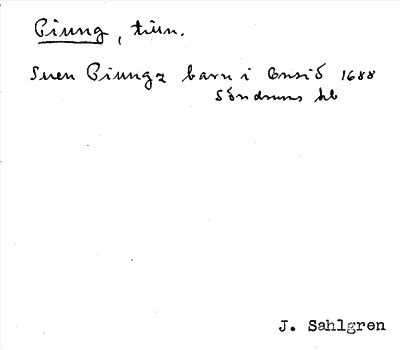 Piung, tiln.
Suen Piungz barn i Onsiö 1688
Söndrums kb
J. Sahlgren